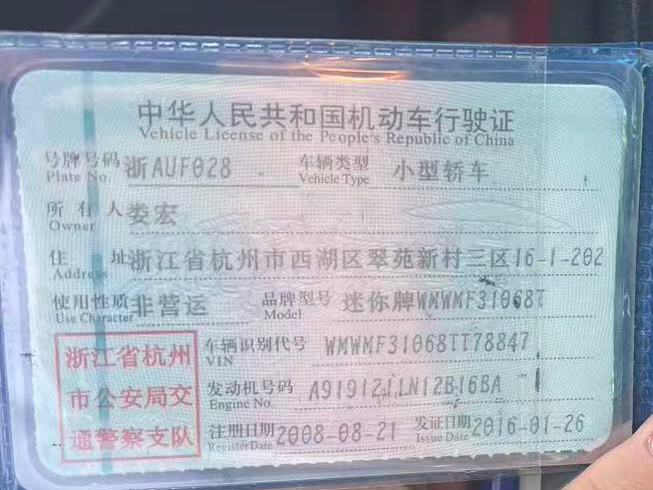 中华人民共和国机动车行驶证
Vehicle License of the People's Republic of China
号牌号码 浙AUF028 车辆类型 小型轿车
Plate No. Vehicle Type
所有人 娄宏
Owner
住址 浙江省杭州市西湖区翠苑新村三区16-1-202
Address
使用性质 非营运 品牌型号 迷你牌WMWMF31068T
Use Character Model
浙江省杭州
市公安局交
通警察支队
车辆识别代号 WMWMF31068TT78847
VIN
发动机号码
Engine No.
注册日期 2008-08-21 发证日期 2016-01-26
Register Date Issue Date